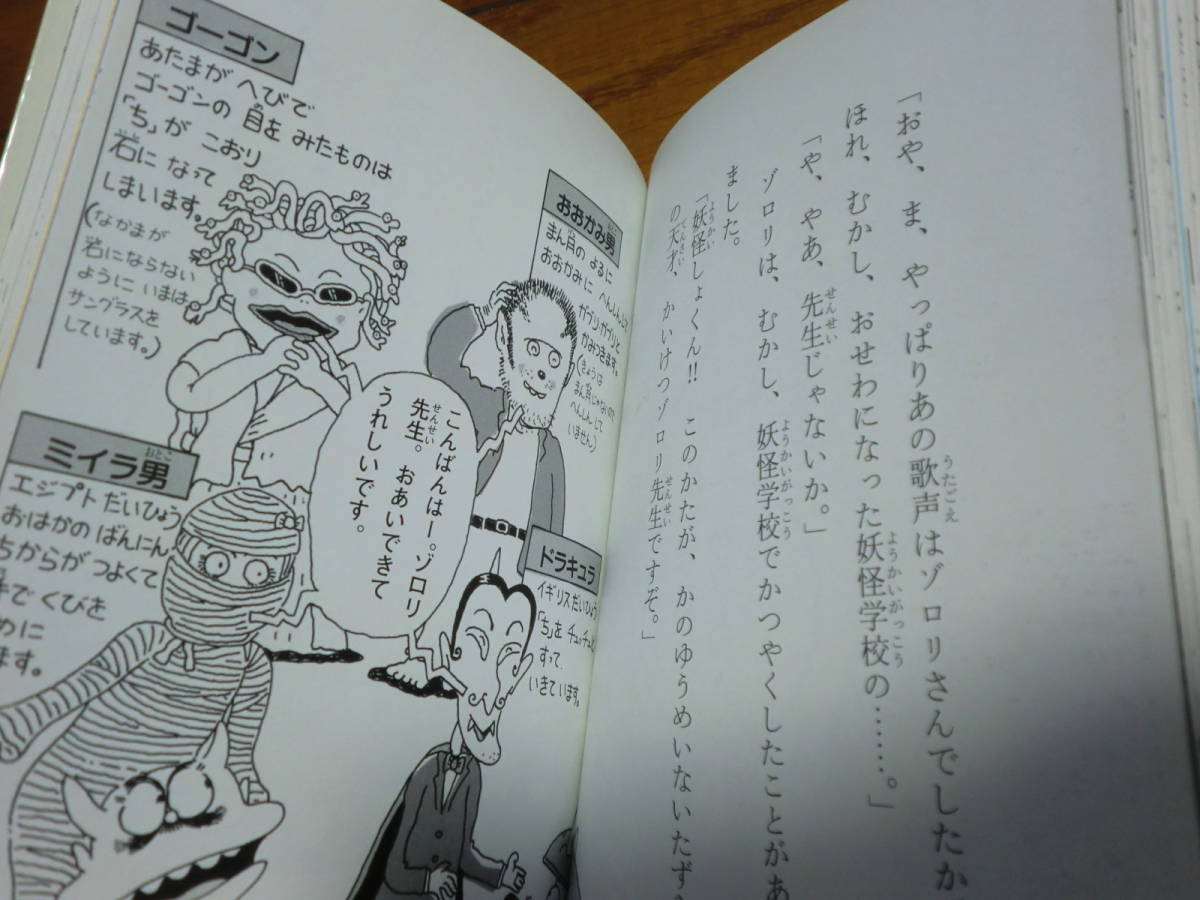 「おや、ま、やっぱりあの歌声はゾロリさんでしたか
ほれ、むかし、おせわになった妖怪学校の……。」
「や、やあ、先生じゃないか。」
ゾロリは、むかし、妖怪学校でかつやくしたことがあ
ました。
「妖怪しょくん!! このかたが、かのゆうめいないたず
の天才、かいけつゾロリ先生ですぞ。」
おおかみ男
まん月の よるに
おおかみに へんしんして
ガブリガブリと
かみつきます。
(きょうは
まん月じゃないので
へんしんして
いません)
ゴーゴン
あたまが へびで
ゴーゴンの 目を みたものは
「ち」が こおり
石に なって
しまいます。
(なかまが
岩にならない
ように いまは
サングラスを
しています。)
こんばんはー。ゾロリ
先生。おあいできて
うれしいです。
ドラキュラ
イギリスだいひょう
「ち」を チュッチュと
すって
いきています。
ミイラ男
エジプトだいひょう
おはかの ばんにん
ちからが つよくて
手で くびを
めに
ます。